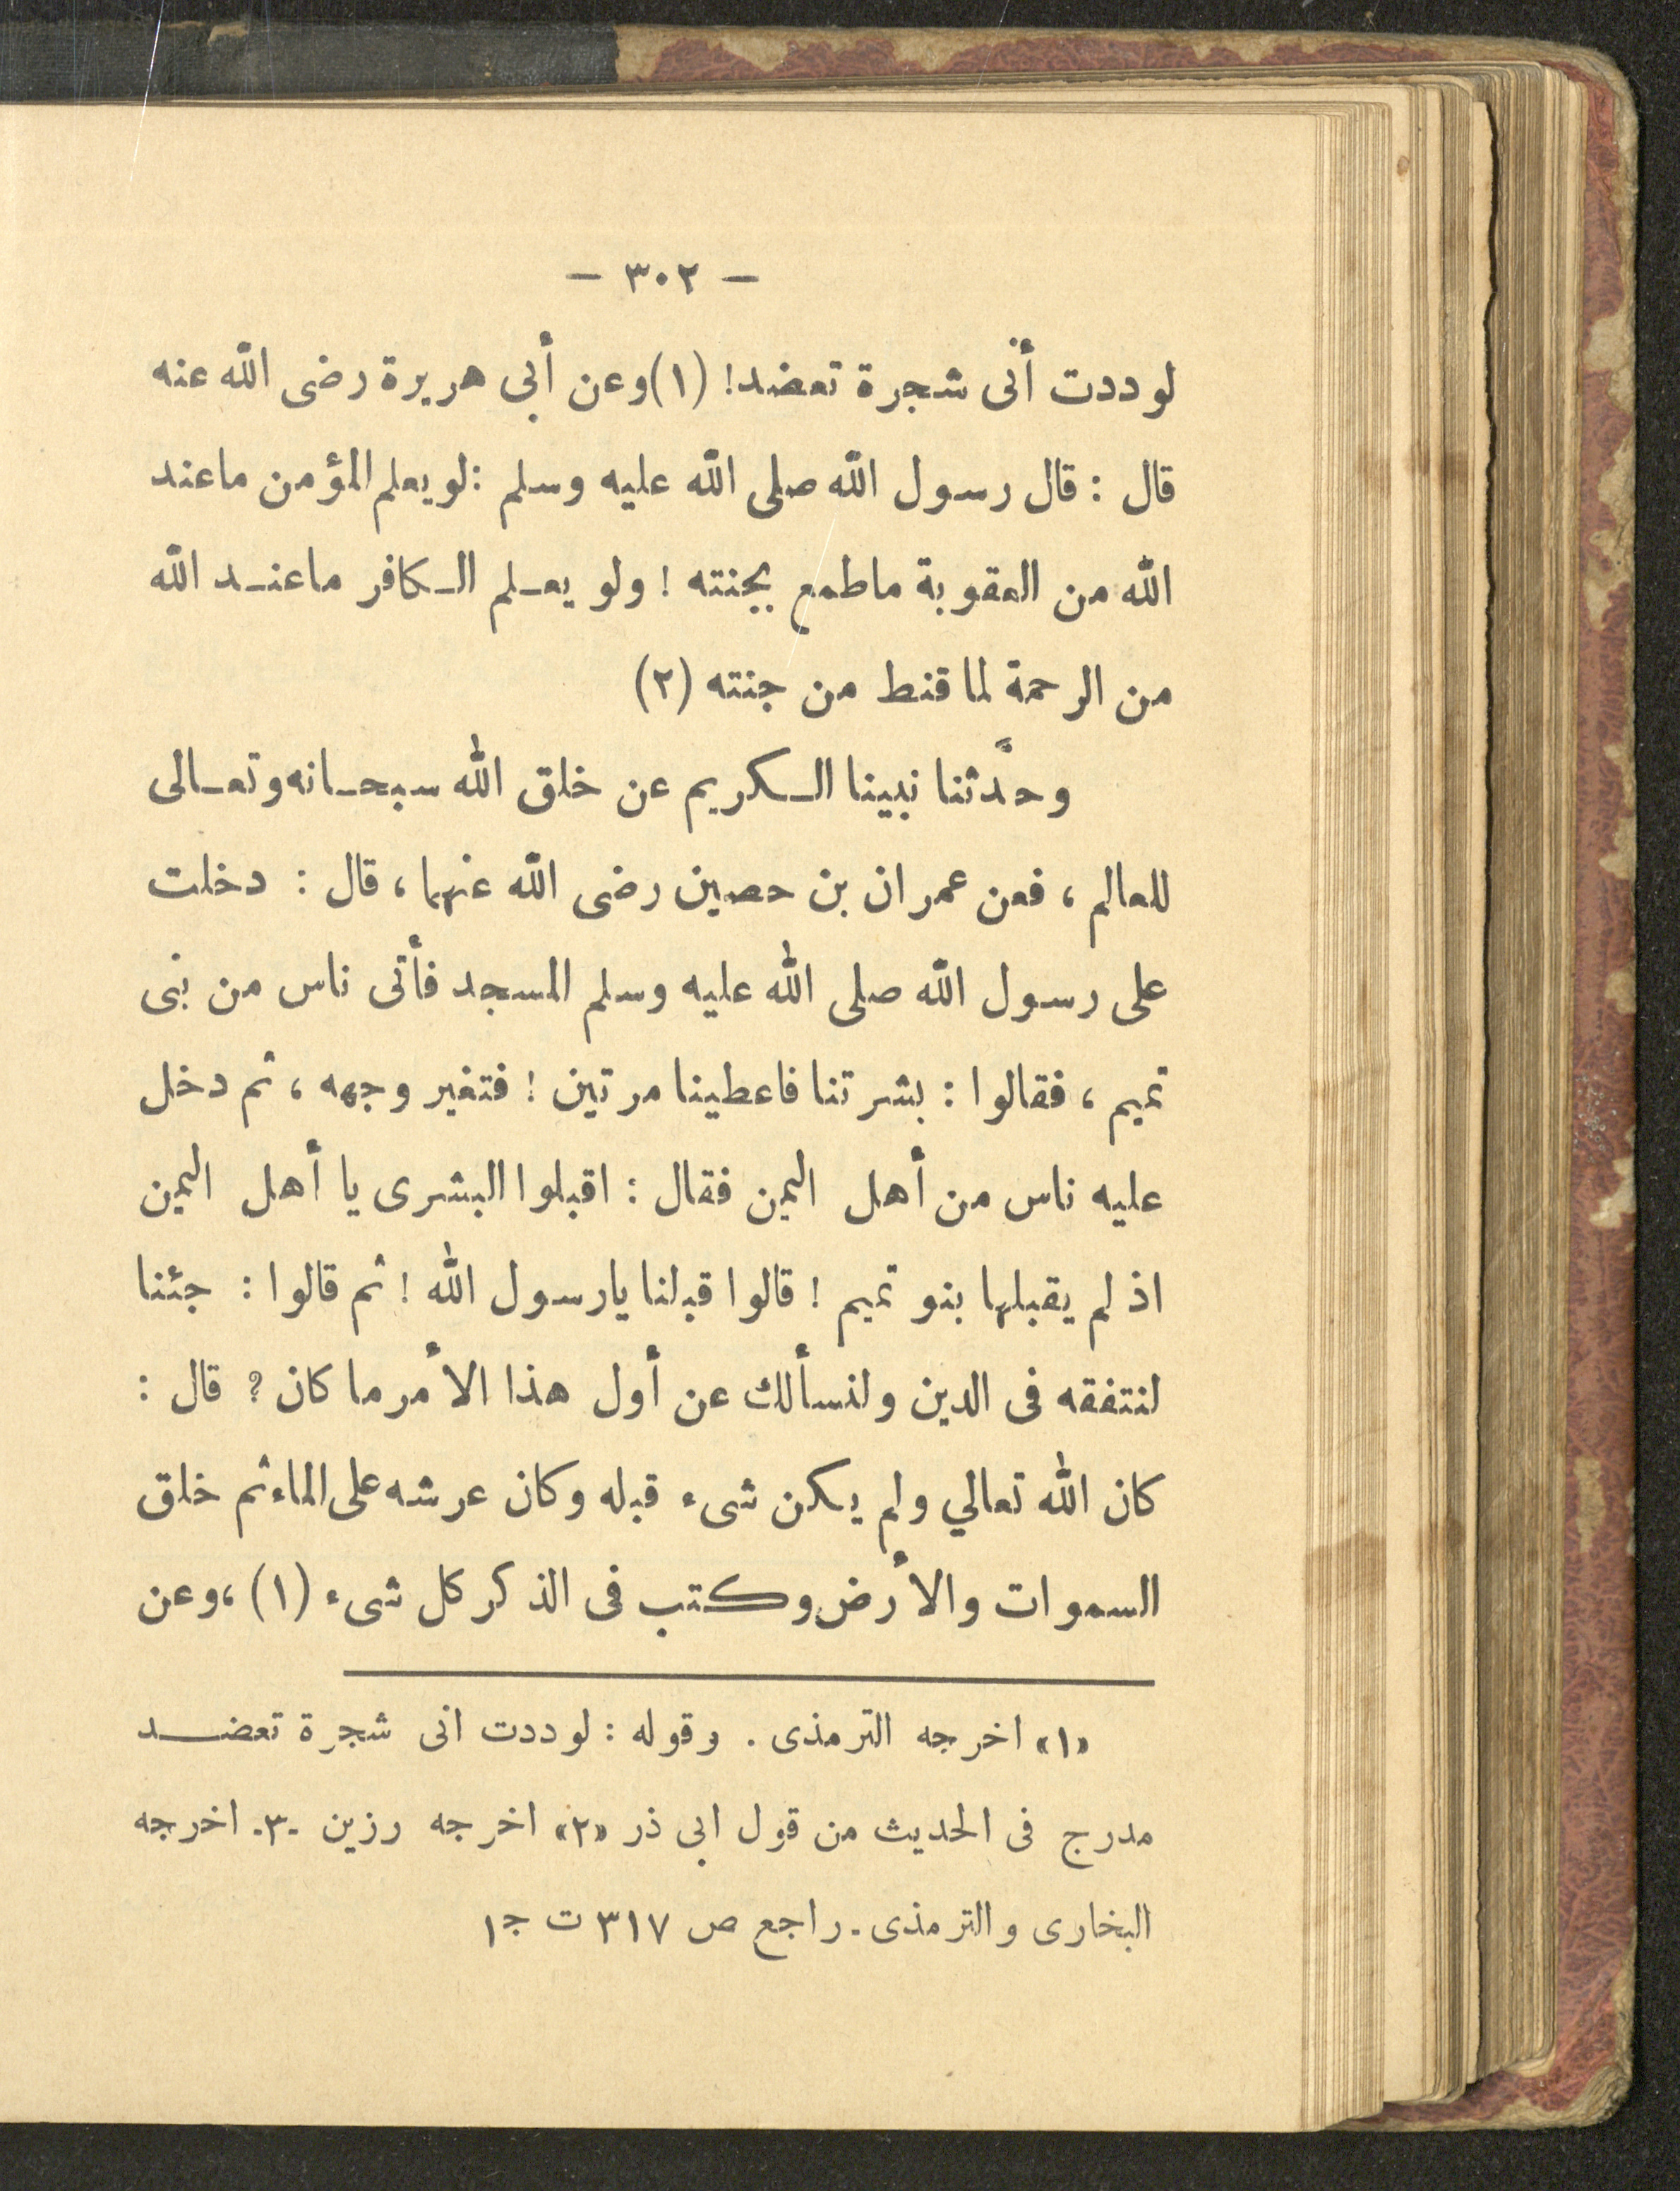 — ٣٠٢ —
لوددت أنى شجرة تعضد! (١) وعن أبي هريرة رضى الله عنه
قال : قال رسول الله صلى الله عليه وسلم : لو يعلم المؤمن ماعند
الله من العقوبة ماطمع بجنته ! ولو يعلم الكافر ماعند الله
من الرحمة لما قنط من جنته (٢)
وحدَّثنا نبينا الكريم عن خلق الله سبحانه وتعالى
للعالم ، فعن عمران بن حصين رضى الله عنهما ، قال : دخلت
على رسول الله صلى الله عليه وسلم المسجد فأتى ناس من بنى
تميم ، فقالوا : بشرتنا فاعطينا مرتين ! فتغير وجهه ، ثم دخل
عليه ناس من أهل اليمن فقال : اقبلوا البشرى يا أهل اليمن
اذ لم يقبلها بنو تميم ! قالوا قبلنا يارسول الله ! ثم قالوا : جئنا
لنتفقه فى الدين ولنسألك عن أول هذا الأمر ما كان ؟ قال :
كان الله تعالي ولم يكن شىء قبله وكان عرشه على الماء ثم خلق
السموات والأرض وكتب فى الذكر كل شىء (١) ، وعن
«١» اخرجه الترمذى . وقوله : لوددت انى شجرة تعضد
مدرج فى الحديث من قول ابى ذر «٢» اخرجه رزين -٣- اخرجه
البخارى والترمذى . راجع ص ٣١٧ ت ج١